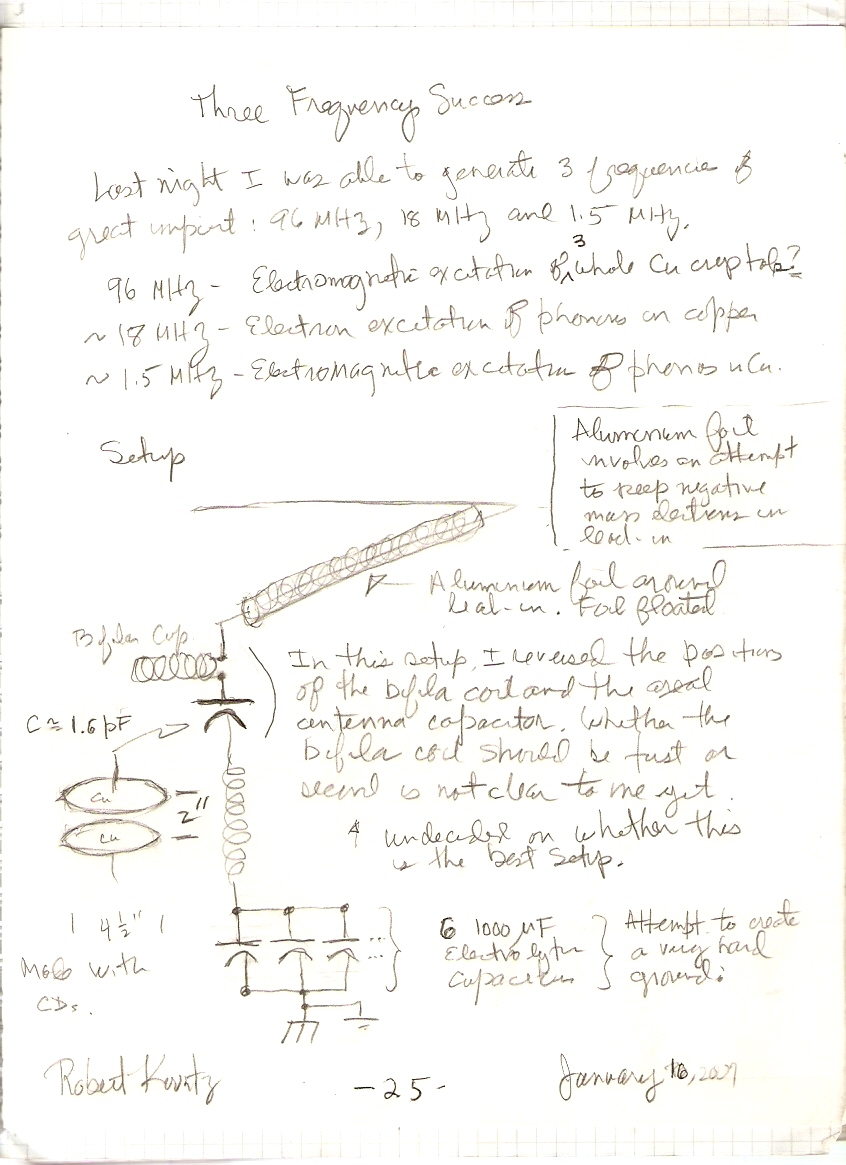 Three Frequency Success
Last night I was able to generate 3 frequencies of
great import: 96 MHz, 18 MHz and 1.5 MHz.
3
96 MHz - Electromagnetic excitation of whole Cu crystals?
~ 18 MHz - Electron excitation of phonons in copper
~ 1.5 MHz - Electromagnetic excitation of phonos Cu.
Setup
Aluminium foil
involves an attempt
to keep negative
mass electrons in
lead-in
Aluminium foil around
lead-in. Foil floated
Bifilar
In this setup, I reversed the positions
of the bifila coil and the
antenna capacitor. Whether the
bifila coil should be first or
second is not clear to me yet.
C ≈ 1.6 pF
Cu
2"
Cu
undecided on whether this
is the best setup.
4 1/2"
Made with
CDs.
6 1000 µF
Electrolytic
Capacitors
Attempt to create
a very hard
ground.
...
...
Robert
-25-
January 16,